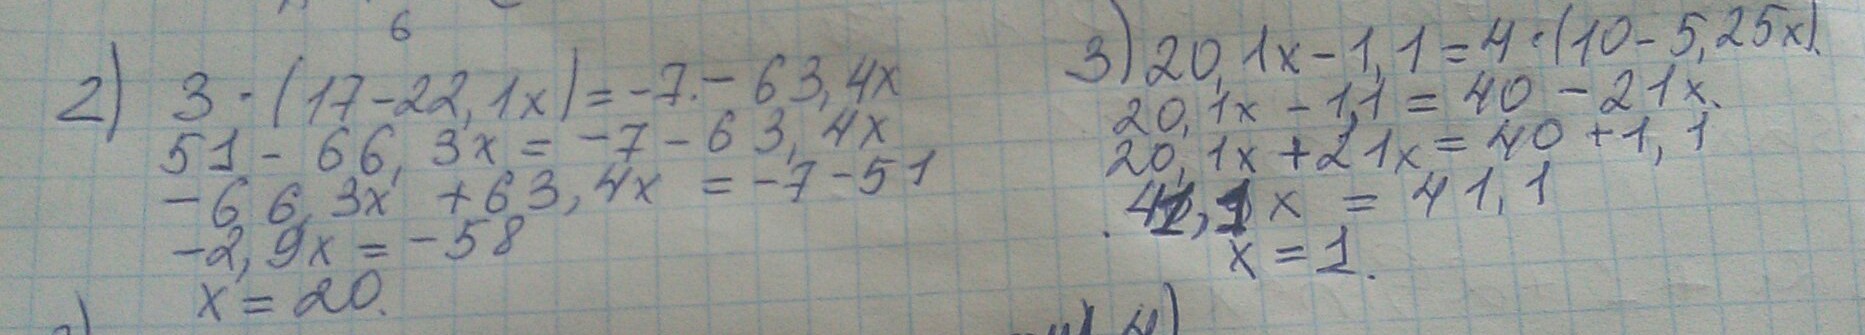 6
2) 3 · (17 - 22,1x) = -7 - 63,4x
51 - 66,3x = -7 - 63,4x
-66,3x + 63,4x = -7 - 51
-2,9x = -58
x = 20.
3) 20,1x - 1,1 = 4 · (10 - 5,25x).
20,1x - 1,1 = 40 - 21x.
20,1x + 21x = 40 + 1,1
41,1x = 41,1
x = 1.
4)